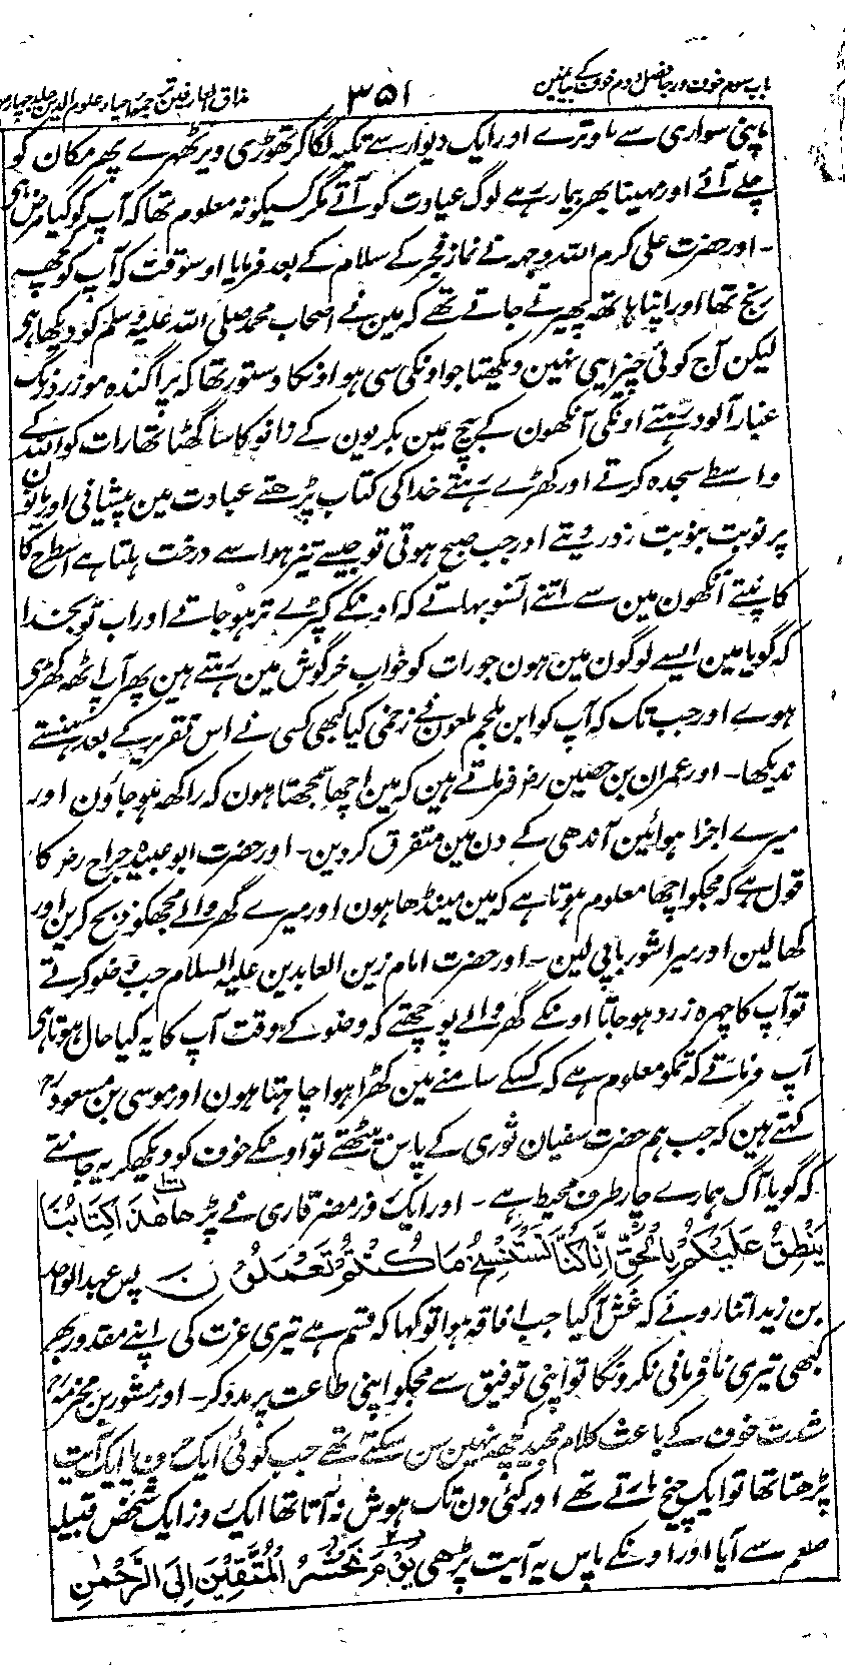 باب سوم خوف ورجا فصل دوم خوف کے بیان مین
۳۵۱
مذاق العارفین ترجمہ احیاء علوم الدین جلد چہارم
اپنی سواری سے اوترے اور ایک دیوار سے تکیہ لگا کر تھوڑی دیر ٹھہرے پھر مکان کو
چلے آئے اور مہینا بھر بیمار رہے لوگ عیادت کو آتے مگر کسیکو نہ معلوم تھا کہ آپ کو کیا مرض ہی
۔ اور حضرت علی کرم اللہ وجہہ نے نماز فجر کے سلام کے بعد فرمایا اوسوقت کہ آپ کو کچھ
رنج تھا اور اپنا ہاتھ پھیرتے جاتے تھے کہ مین نے اصحاب محمد صلی اللہ علیہ وسلم کو دیکھا ہی
لیکن آج کوئی چیز ایسی نہین دیکھتا جو اونکی سی ہو اونکا دستور تھا کہ پراگندہ مو زرد رنگ
غبار آلود رہتے اونکی آنکھون کے بیچ مین بکریون کے زانو کا سا گھٹا تھا رات کو اللہ کے
واسطے سجدہ کرتے اور کھڑے رہتے خدا کی کتاب پڑھتے عبادت مین پیشانی اور پانون
پر نوبت بنوبت زور دیتے اور جب صبح ہوتی تو جیسے تیز ہوا سے درخت ہلتا ہے اسطرح کا
کانپتے آنکھون مین سے اتنے آنسو بہاتے کہ اونکے کپڑے تر ہو جاتے اور اب تو بخدا
کہ گویا مین ایسے لوگون مین ہون جو رات کو خواب خرگوش مین رہتے ہین پھر آپ اٹھ کھڑی
ہوے اور جب تک کہ آپ کو ابن ملجم ملعون نے زخمی کیا کبھی کسی نے اس تقریر کے بعد ہنستے
ندیکھا۔ اور عمران بن حصین رض فرماتے ہین کہ مین اچھا سمجھتا ہون کہ راکھ ہو جاؤن اور
میرے اجزا ہوائین آندھی کے دن مین متفرق کر دین۔ اور حضرت ابو عبیدہ جراح رض کا
قول ہے کہ مجکو اچھا معلوم ہوتا ہے کہ مین مینڈھا ہون اور میرے گھر والے مجھکو ذبح کرین اور
کھا لین اور میرا شوربا پی لین۔ اور حضرت امام زین العابدین علیہ السلام جب وضو کرتے
تو آپ کا چہرہ زرد ہو جاتا اونکے گھر والے پوچھتے کہ وضو کے وقت آپ کا یہ کیا حال ہوتا ہی
آپ فرماتے کہ تمکو معلوم ہے کہ کسکے سامنے مین کھڑا ہوا چاہتا ہون اور موسی بن مسعود رح
کہتے ہین کہ جب ہم حضرت سفیان ثوری کے پاس بیٹھتے تو اونکے خوف کو دیکھکر یہ جانتے
کہ گویا آگ ہمارے چار طرف محیط ہے۔ اور ایک روز مضر قاری نے پڑھا هٰذَا كِتَابُنَا
يَنْطِقُ عَلَيْكُمْ بِالْحَقِّ اِنَّا كُنَّا نَسْتَنْسِخُ مَا كُنْتُمْ تَعْمَلُوْنَ پس عبدالواحد
بن زید اتنا روئے کہ غش آگیا جب افاقہ ہوا تو کہا کہ قسم ہے تیری عزت کی اپنے مقدور بھر
کبھی تیری نافرمانی نکرونگا تو اپنی توفیق سے مجکو اپنی طاعت پر مدد کر۔ اور مسور بن مخرمہ رض
شدت خوف کے باعث کلام مجید کچھ نہین سن سکتے تھے جب کوئی ایک حرف یا ایک آیت
پڑھتا تھا تو ایک چیخ مارتے تھے اور کئی دن تک ہوش نہ آتا تھا ایک روز ایک شخص قبیلہ
خثعم سے آیا اور اونکے پاس یہ آیت پڑھی يَوْمَ نَحْشُرُ الْمُتَّقِيْنَ اِلَى الرَّحْمٰنِ